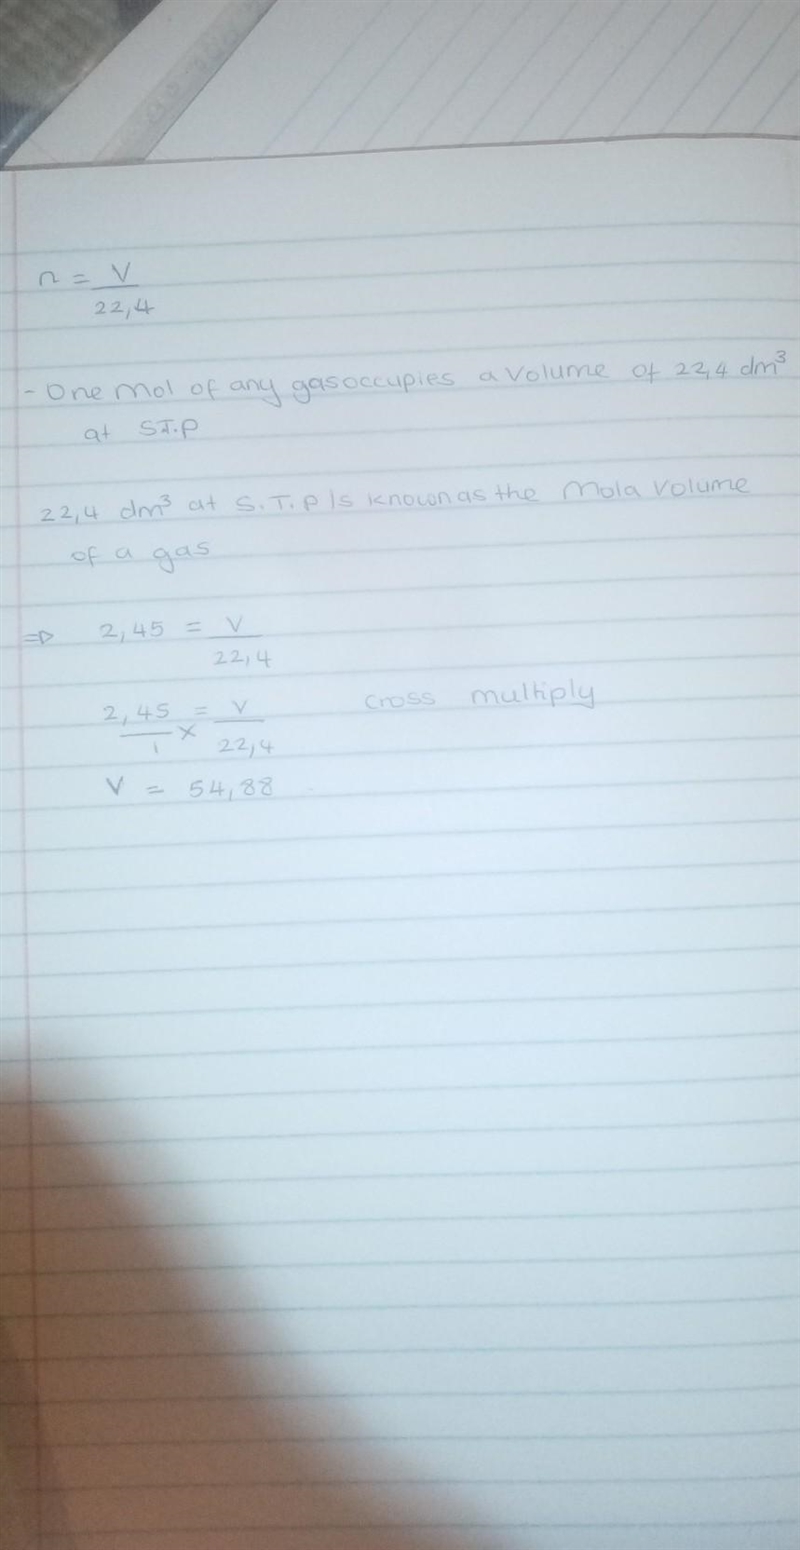 n = V
22,4
- One mol of any gas occupies a volume of 22,4 dm³
at S.T.P
22,4 dm³ at S.T.P is known as the Mola volume
of a gas
⇒ 2,45 = V
22,4
2,45 = V cross multiply
1 × 22,4
V = 54,88